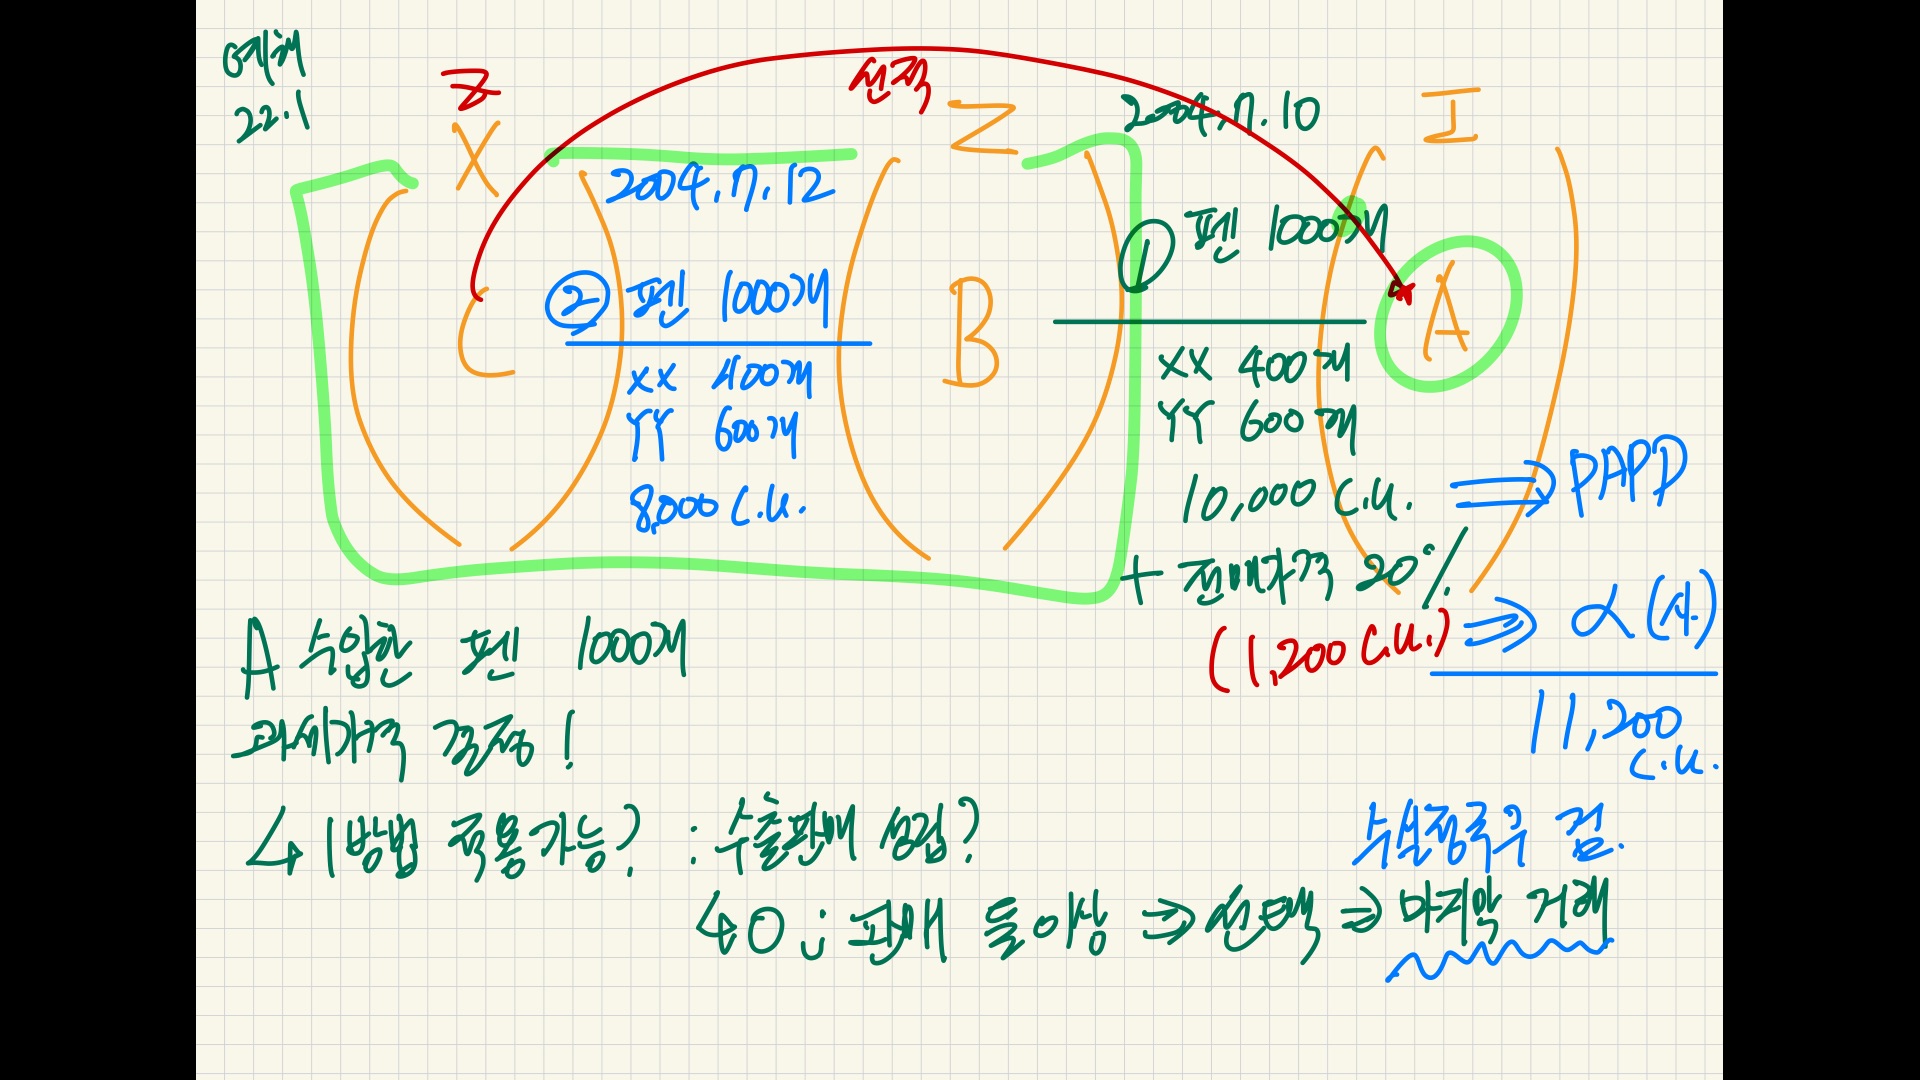 예제
22.1
Z
X
선적
Z
2004.7.10
I
2004.7.12
① 펜 1000개
② 펜 1000개
C
B
A
XX 400개
YY 600개
8,000 C.U.
XX 400개
YY 600개
10,000 C.U. ⇒ PAPP
+ 판매가격 20%
(1,200 C.U.) ⇒ α (사.)
11,200
C.U.
A 수입한 펜 1000개
과세가격 결정!
↳ 1방법 적용가능? : 수출판매 성립?
↳ O ∵ 판매 둘 이상 ⇒ 선택 ⇒ 마지막 거래